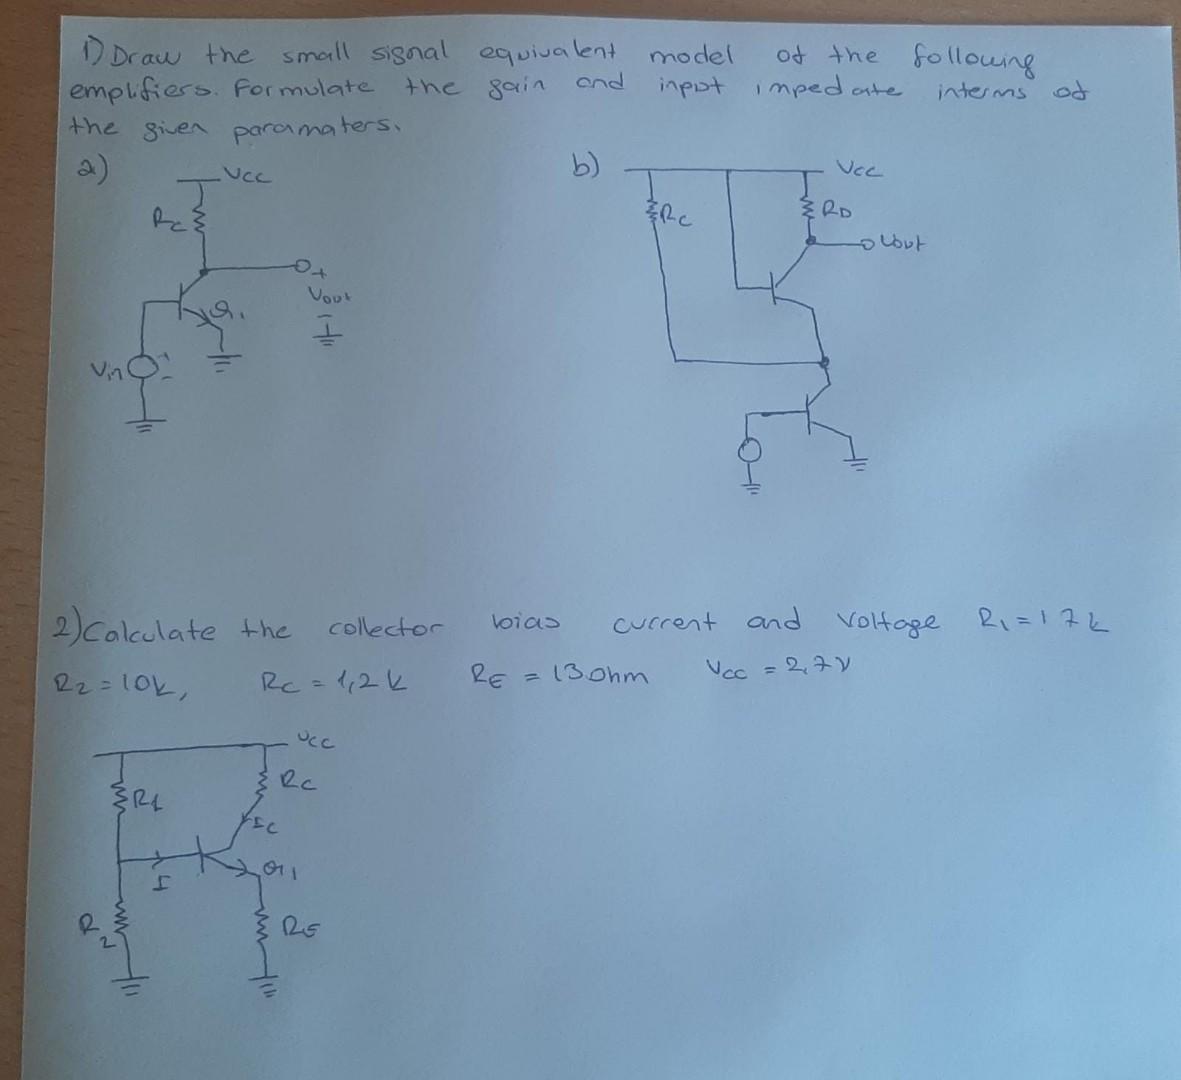 1) Draw the small signal equivalent model of the following
emplifiers. Formulate the gain and input impedate interms of
the given paramaters.
a)
VCC
RC
Q1
Vout
+
-
Vin
+
-
b)
Vcc
RC
RD
Vout
2) Calculate the collector bias current and voltage R1 = 17k
R2 = 10k, RC = 1,2 k RE = 13 Ohm VCC = 2,7V
VCC
R1
RC
IC
I
Q1
R2
RE